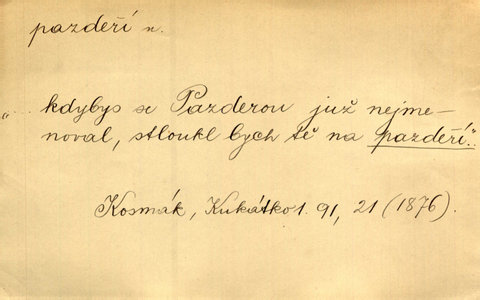 pazdeří n.
„... kdybys se Pazderou již nejme-
noval, stloukl bych tě na pazdeří.“
Kosmák, Kukátko 1. 91, 21 (1876).